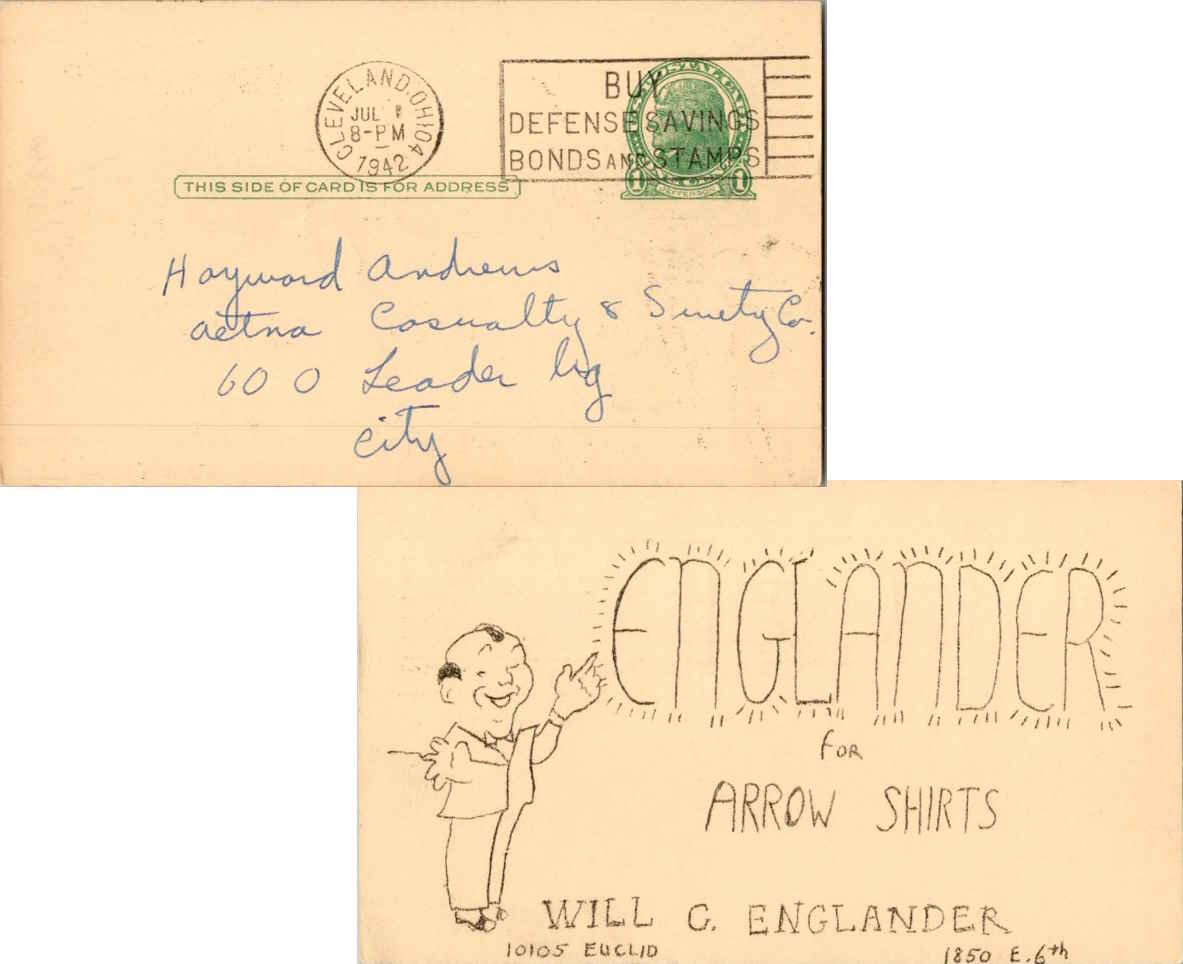 CLEVELAND, OHIO
JUL
8-PM
1942
BUY
DEFENSE SAVINGS
BONDS AND STAMPS
THIS SIDE OF CARD IS FOR ADDRESS
1 JEFFERSON 1
Hayward Andrews
Aetna Casualty & Surety Co.
600 Leader
City
ENGLANDER
FOR
ARROW SHIRTS
WILL C. ENGLANDER
10105 EUCLID 1850 E. 6th